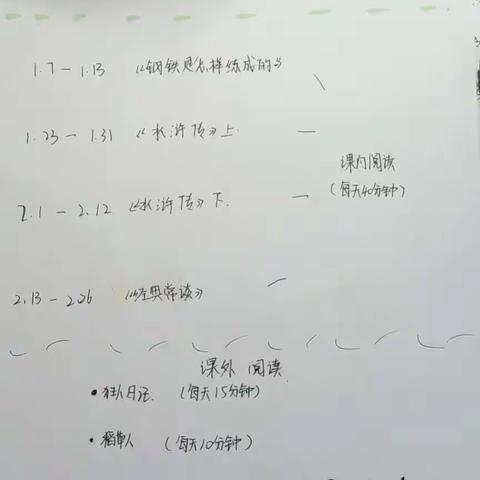 1.7-1.13 《钢铁是怎样练成的》
1.23-1.31 《水浒传》上.
课内阅读
(每天40分钟)
2.1-2.12 《水浒传》下.
2.13-2.26 《经典常谈》
课外 阅读
•狂人日记. (每天15分钟)
•稻草人 (每天10分钟)